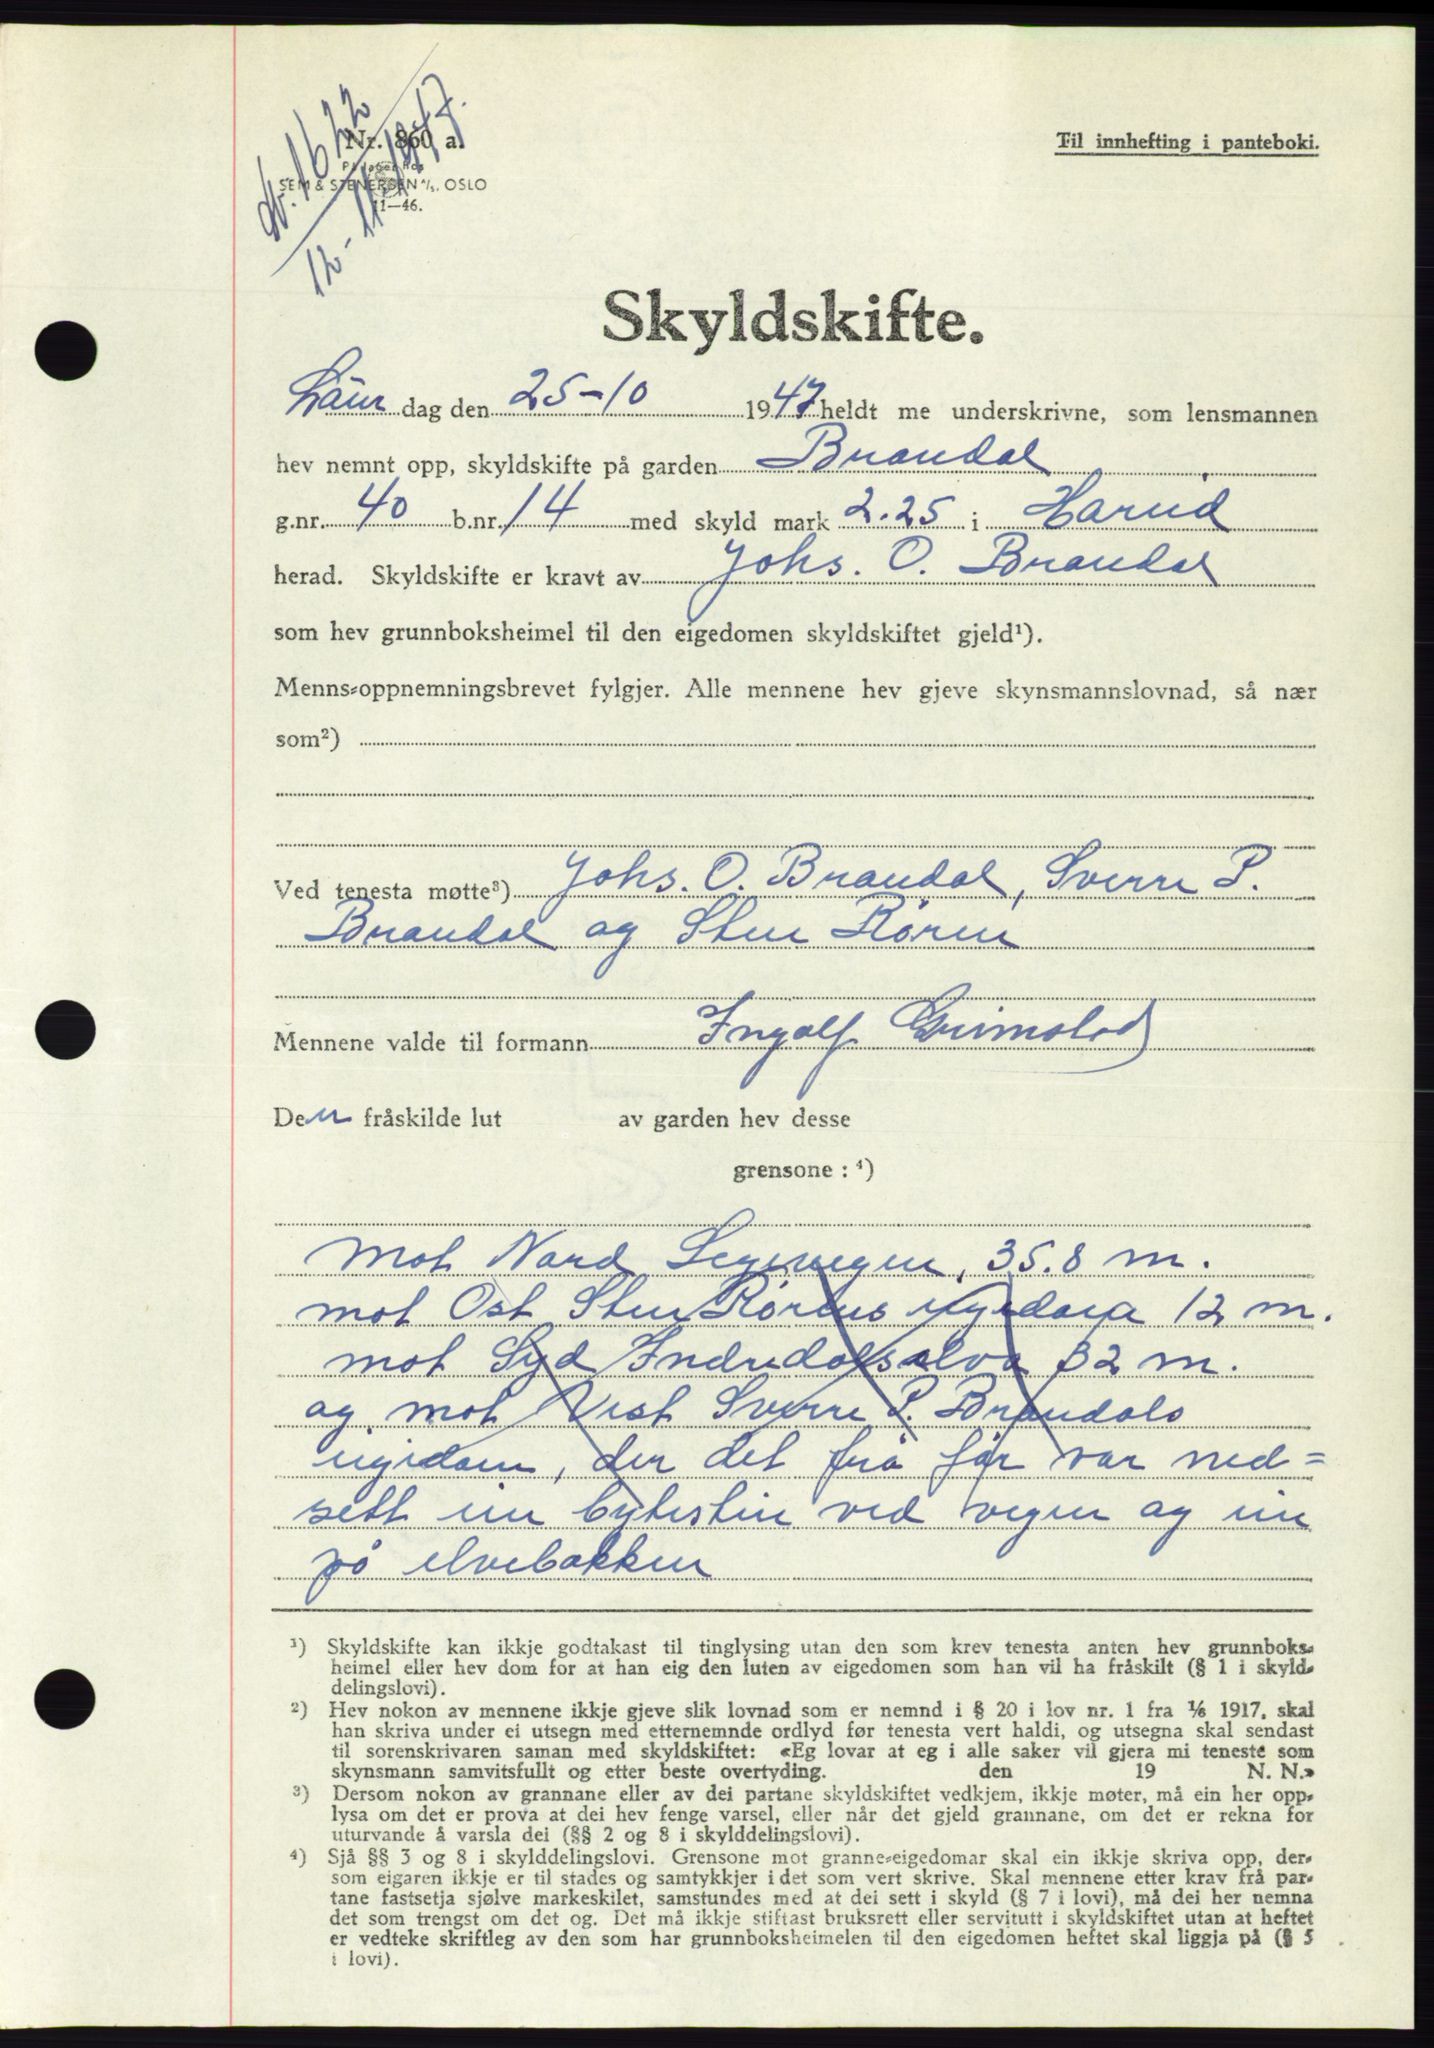 Nr. 1622
12-11-1947.
Nr. 860 a.
På lager hos
SEM & STENERSEN A/S, OSLO
11—46.
Til innhefting i panteboki.
Skyldskifte.
Laur dag den 25-10 1947 heldt me underskrivne, som lensmannen
hev nemnt opp, skyldskifte på garden Brandal
g.nr. 40 b.nr. 14 med skyld mark 2.25 i Hareid
herad. Skyldskifte er kravt av Johs. O. Brandal
som hev grunnboksheimel til den eigedomen skyldskiftet gjeld¹).
Menns-oppnemningsbrevet fylgjer. Alle mennene hev gjeve skynsmannslovnad, så nær
som²)
Ved tenesta møtte³) Johs. O. Brandal, Sverre P.
Brandal og Sten Røren
Mennene valde til formann Ingolf Grimstad
Den fråskilde lut av garden hev desse
grensone : ⁴)
mot Nord 35.8 m.
mot Ost Sten Rørens eigedom 12 m.
mot Syd Indredalselva 32 m.
og mot Vest Sverre P. Brandals
eigedom, der det frå før var ned=
sett ein bytestein ved vegen og ein
på elvebakken
¹) Skyldskifte kan ikkje godtakast til tinglysing utan den som krev tenesta anten hev grunnboks-
heimel eller hev dom for at han eig den luten av eigedomen som han vil ha fråskilt (§ 1 i skyld-
delingslovi).
²) Hev nokon av mennene ikkje gjeve slik lovnad som er nemnd i § 20 i lov nr. 1 fra 1/6 1917, skal
han skriva under ei utsegn med etternemnde ordlyd før tenesta vert haldi, og utsegna skal sendast
til sorenskrivaren saman med skyldskiftet: «Eg lovar at eg i alle saker vil gjera mi teneste som
skynsmann samvitsfullt og etter beste overtyding. den 19 N. N.»
³) Dersom nokon av grannane eller av dei partane skyldskiftet vedkjem, ikkje møter, må ein her opp-
lysa om det er prova at dei hev fenge varsel, eller når det gjeld grannane, om det er rekna for
uturvande å varsla dei (§§ 2 og 8 i skylddelingslovi).
⁴) Sjå §§ 3 og 8 i skylddelingslovi. Grensone mot granne-eigedomar skal ein ikkje skriva opp, der-
som eigaren ikkje er til stades og samtykkjer i det som vert skrive. Skal mennene etter krav frå par-
tane fastsetja sjølve markeskilet, samstundes med at dei sett i skyld (§ 7 i lovi), må dei her nemna
det som trengst om det og. Det må ikkje stiftast bruksrett eller servitutt i skyldskiftet utan at heftet
er vedteke skriftleg av den som har grunnboksheimelen til den eigedomen heftet skal liggja på (§ 5
i lovi).